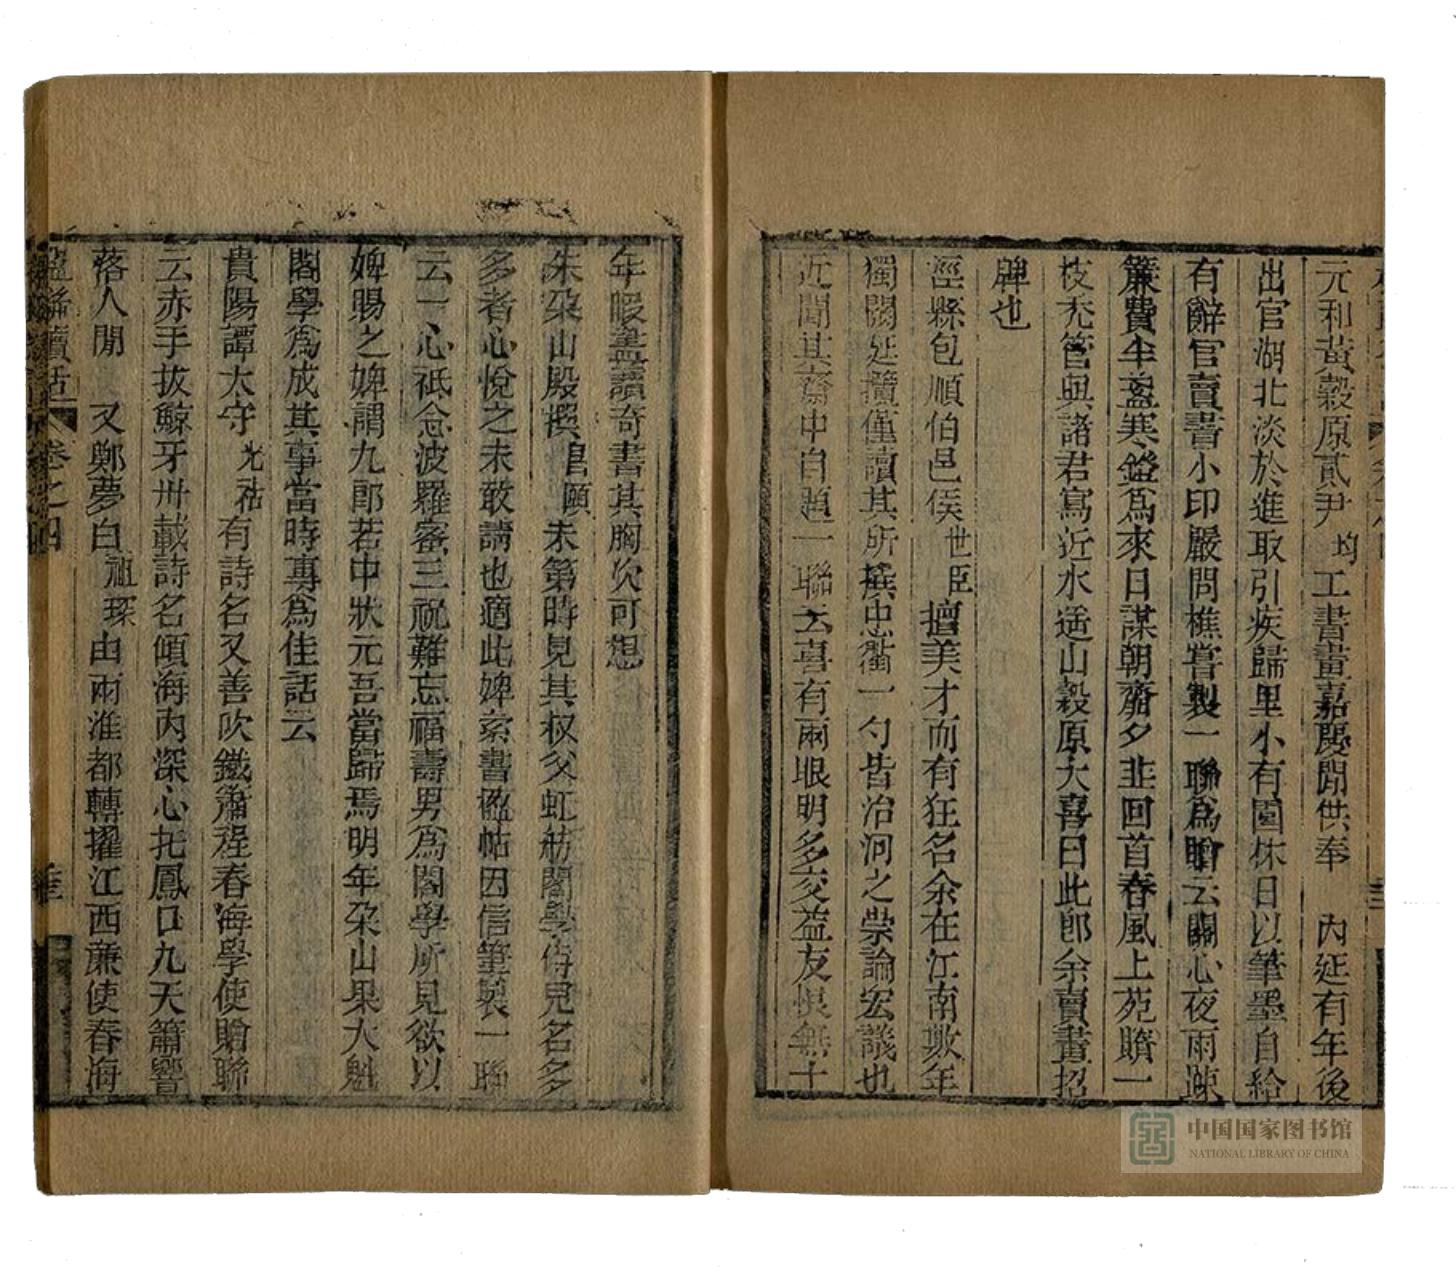 元和黃穀原貳尹均工書畫嘉慶閒供奉 內廷有年後
出官湖北淡於進取引疾歸里小有園林日以筆墨自給
有辭官賣畫小印嚴問樵嘗製一聯爲贈云關心夜雨疎
簾費半盞寒燈爲來日謀朝齋夕韭回首春風上苑賸一
枝禿管與諸君寫近水遙山穀原大喜曰此卽余賣畫招
牌也
涇縣包順伯邑侯世臣擅美才而有狂名余在江南數年
獨闕延攬僅讀其所撰中衢一勺皆治河之崇論宏議也
近聞其齋中自題一聯云喜有兩眼明多交益友恨無十
年暇盡讀奇書其胸次可想
朱朶山殿撰昌頤未第時見其叔父虹舫閣學侍兒名多
多者心悅之未敢請也適此婢索書楹帖因信筆製一聯
云一心祗念波羅蜜三祝難忘福壽男爲閣學所見欲以
婢賜之婢謂九郎若中狀元吾當歸焉明年朶山果大魁
閣學爲成其事當時專爲佳話云
貴陽譚太守光祜有詩名又善吹鐵簫程春海學使贈聯
云赤手拔鯨牙卅載詩名傾海內深心托鳳口九天簫響
落人閒 又鄭夢白祖琛由兩淮都轉擢江西廉使春海
楹聯續話 卷之四
中国国家图书馆
NATIONAL LIBRARY OF CHINA